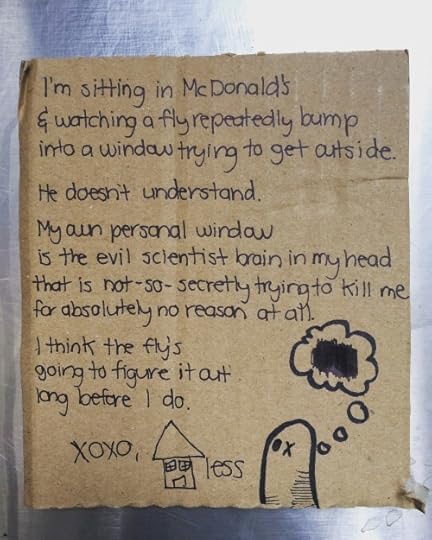 I'm sitting in McDonald's
& watching a fly repeatedly bump
into a window trying to get outside.
He doesn't understand.
My own personal window
is the evil scientist brain in my head
that is not-so-secretly trying to kill me
for absolutely no reason at all.
I think the fly's
going to figure it out
long before I do.
xoxo, less